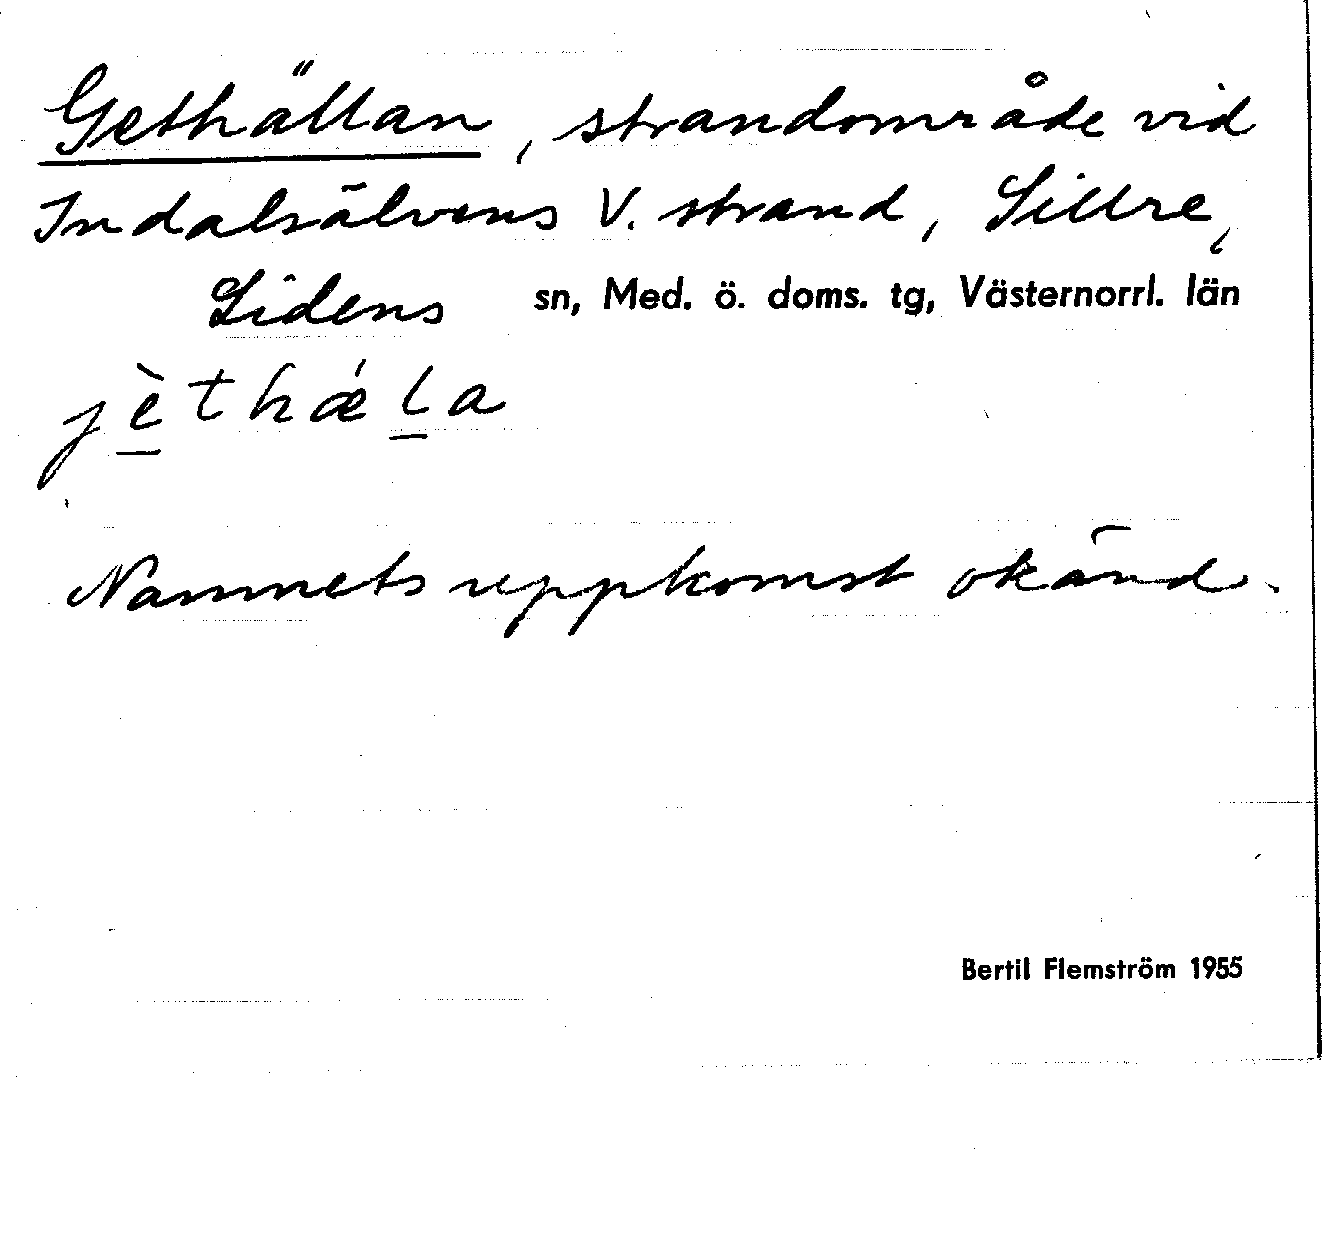 Gethällan, strandområde vid
Indalsälvens V. strand, Sillre,
Lidens sn, Med. ö. doms. tg, Västernorrl. län
jè̱thǽḻa
Namnets uppkomst okänd.
Bertil Flemström 1955